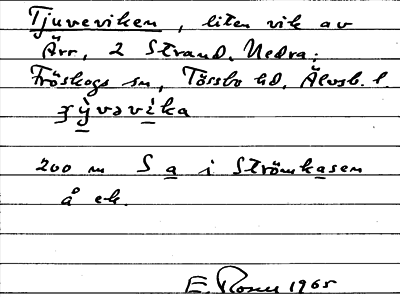 Tjuveviken, liten vik av
Ärr, 2 Strand. Nedra;
Fröskogs sn, Tössbo hd, Älvsb. l.
ʒỳvəvika
200 m S a i Strömkasen
å ek.
E. Rosen 1965